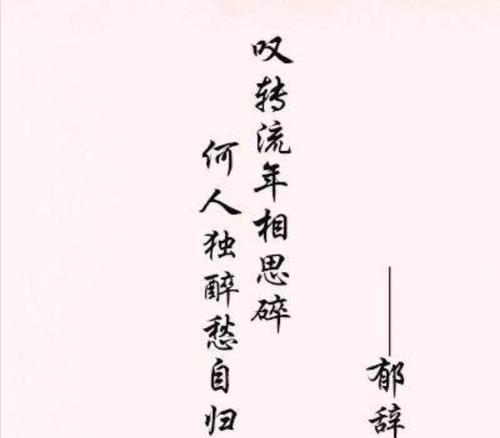 叹转流年相思碎
何人独醉愁自归
——郁辞